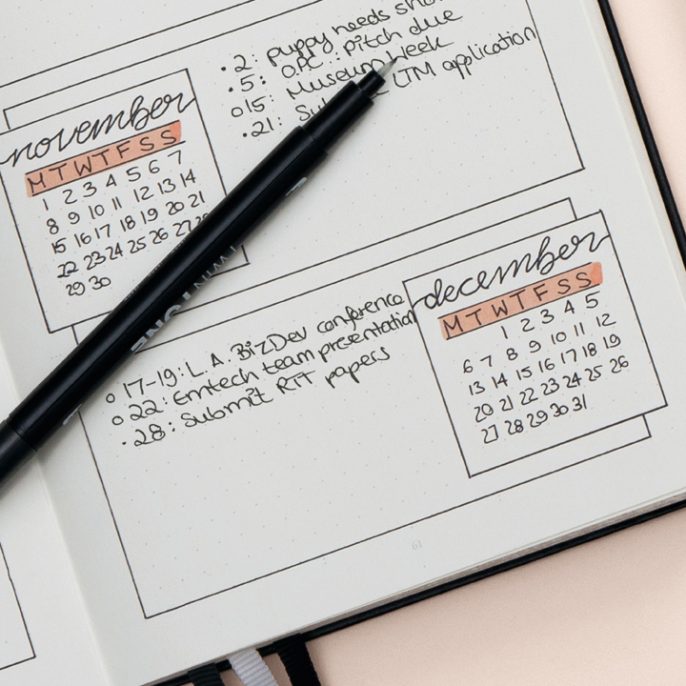 • 2: puppy needs
• 5: OPC : pitch due
o 15: Museum week
• 21: LTM application
november
M T W T F S S
1 2 3 4 5 6 7
8 9 10 11 12 13 14
15 16 17 18 19 20 21
22 23 24 25 26 27
29 30
TWINTONE
o 17-19: L.A. BizDev conference
o 22: Emtech team presentation
• 28: Submit RTT papers
december
M T W T F S S
1 2 3 4 5
6 7 8 9 10 11 12
13 14 15 16 17 18 19
20 21 22 23 24 25 26
27 28 29 30 31
61